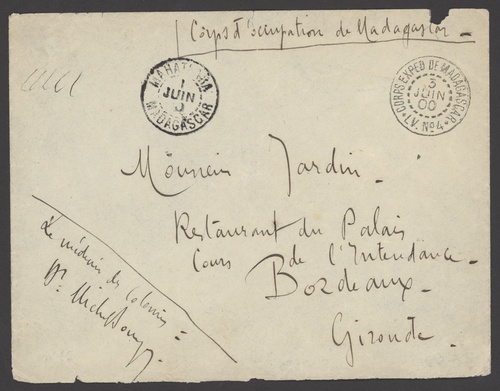 Corps d'occupation de Madagascar
MADAGASCAR
1
JUIN
CORPS EXPED. DE MADAGASCAR
3
JUIN
00
L.V. No 4
Monsieur Jardin
Restaurant du Palais
Cours de l'Intendance
Bordeaux
Gironde
Le médecin des Colonies
Dr.